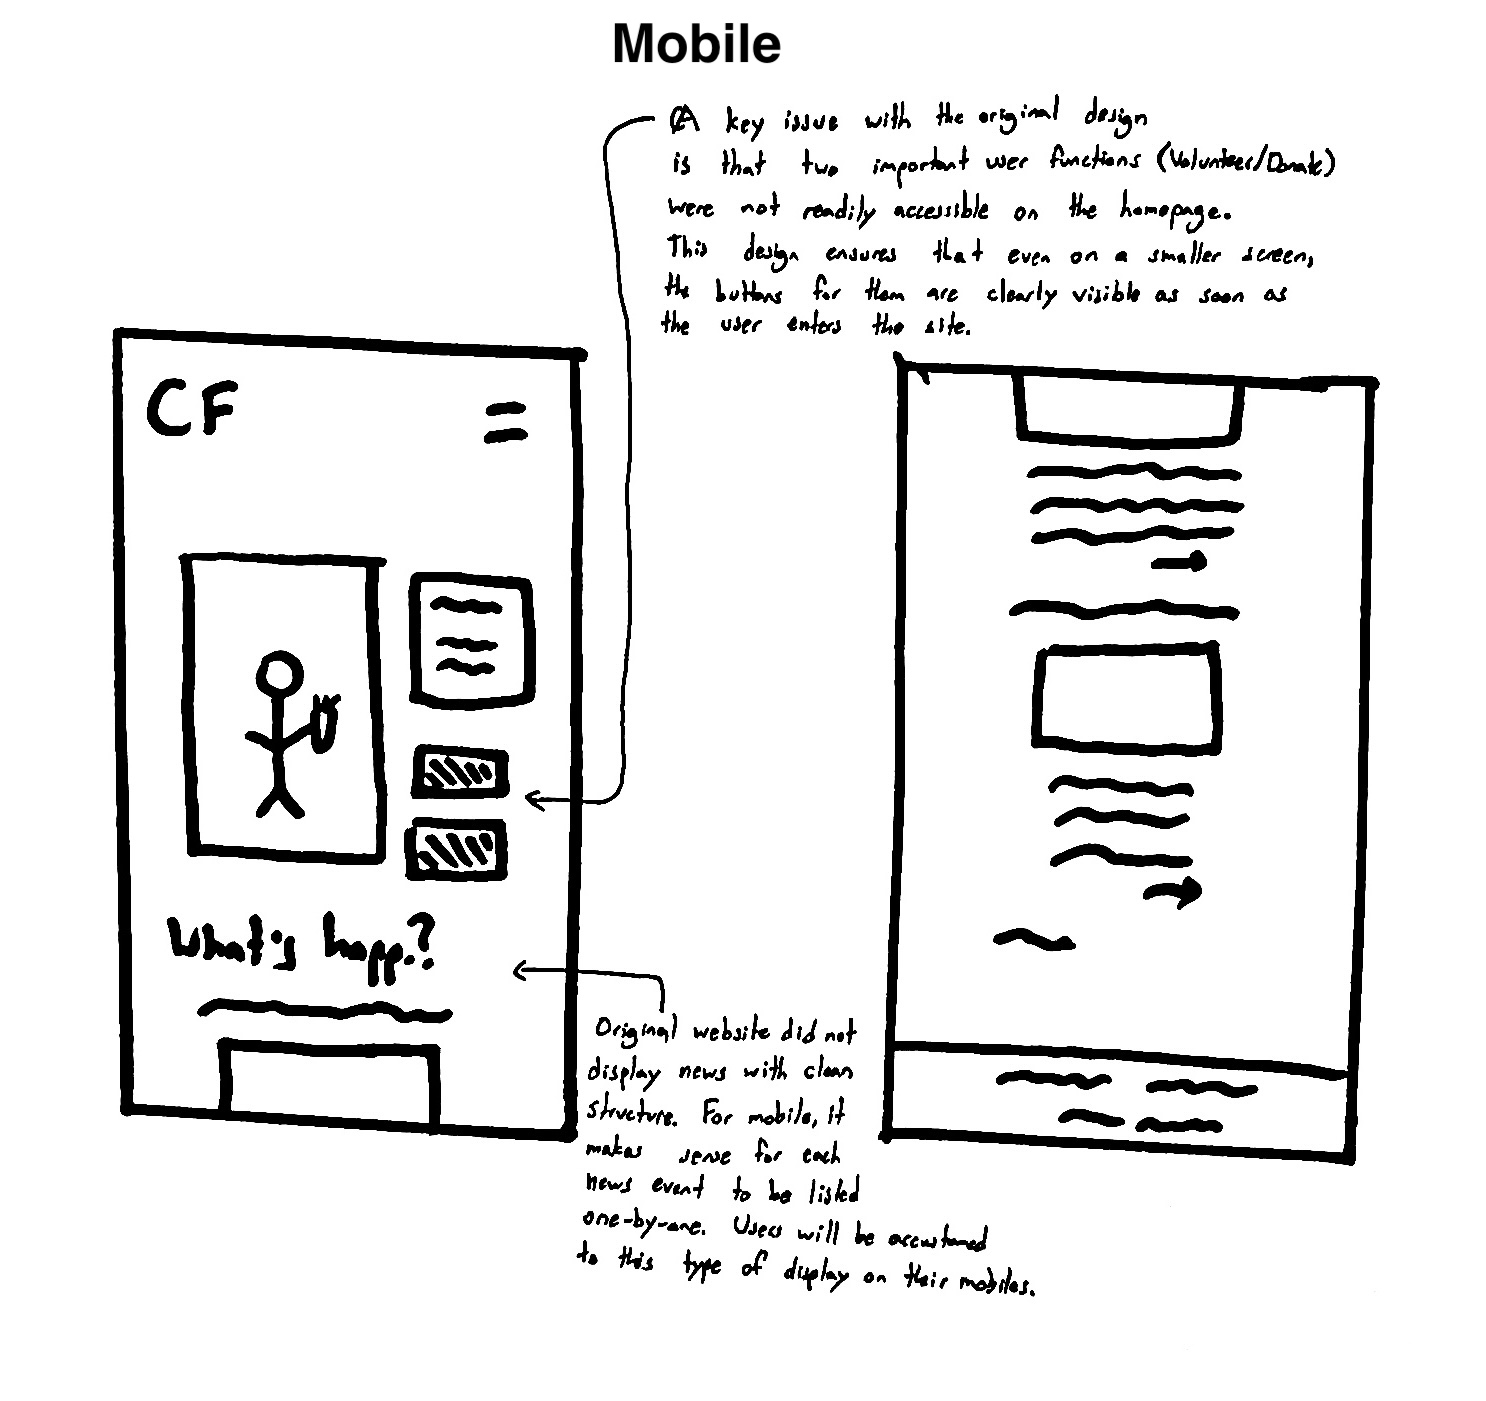 Mobile
A key issue with the original design
is that two important user functions (Volunteer/Donate)
were not readily accessible on the homepage.
This design ensures that even on a smaller screen,
the buttons for them are clearly visible as soon as
the user enters the site.
CF
What's happ.?
Original website did not
display news with clean
structure. For mobile, it
makes sense for each
news event to be listed
one-by-one. Users will be accustomed
to this type of display on their mobiles.